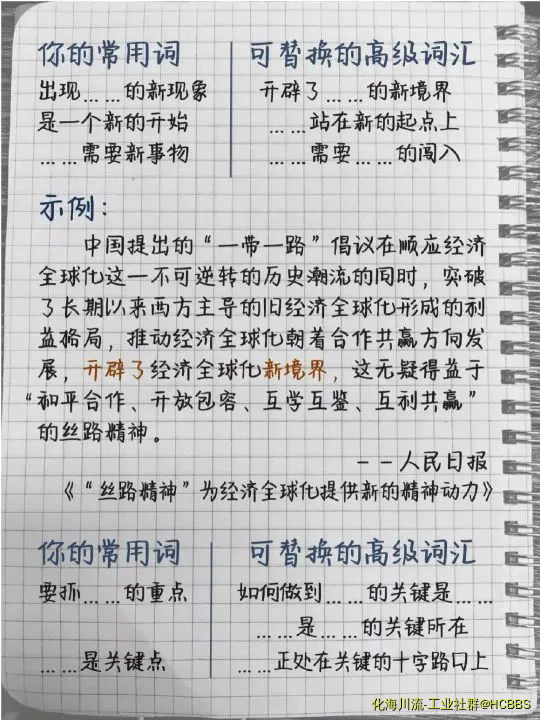 你的常用词 可替换的高级词汇
出现……的新现象 开辟了……的新境界
是一个新的开始 ……站在新的起点上
……需要新事物 ……需要……的闯入
示例：
中国提出的“一带一路”倡议在顺应经济
全球化这一不可逆转的历史潮流的同时，突破
了长期以来西方主导的旧经济全球化形成的利
益格局，推动经济全球化朝着合作共赢方向发
展，开辟了经济全球化新境界，这无疑得益于
“和平合作、开放包容、互学互鉴、互利共赢”
的丝路精神。
——人民日报
《“丝路精神”为经济全球化提供新的精神动力》
你的常用词 可替换的高级词汇
要抓……的重点 如何做到……的关键是……
……是……的关键所在
……是关键点 ……正处在关键的十字路口上
化海川流-工业社群@HCBBS